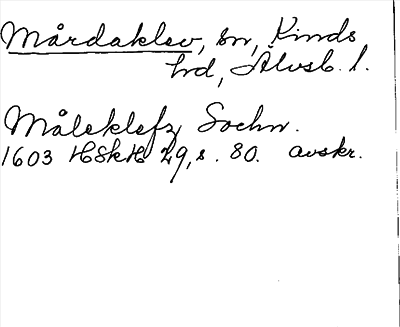 Mårdaklev, sn, Kinds
hd, Älvsb. l.
Måleklefz Sochn.
1603 HSkH 29, s. 80. avskr.